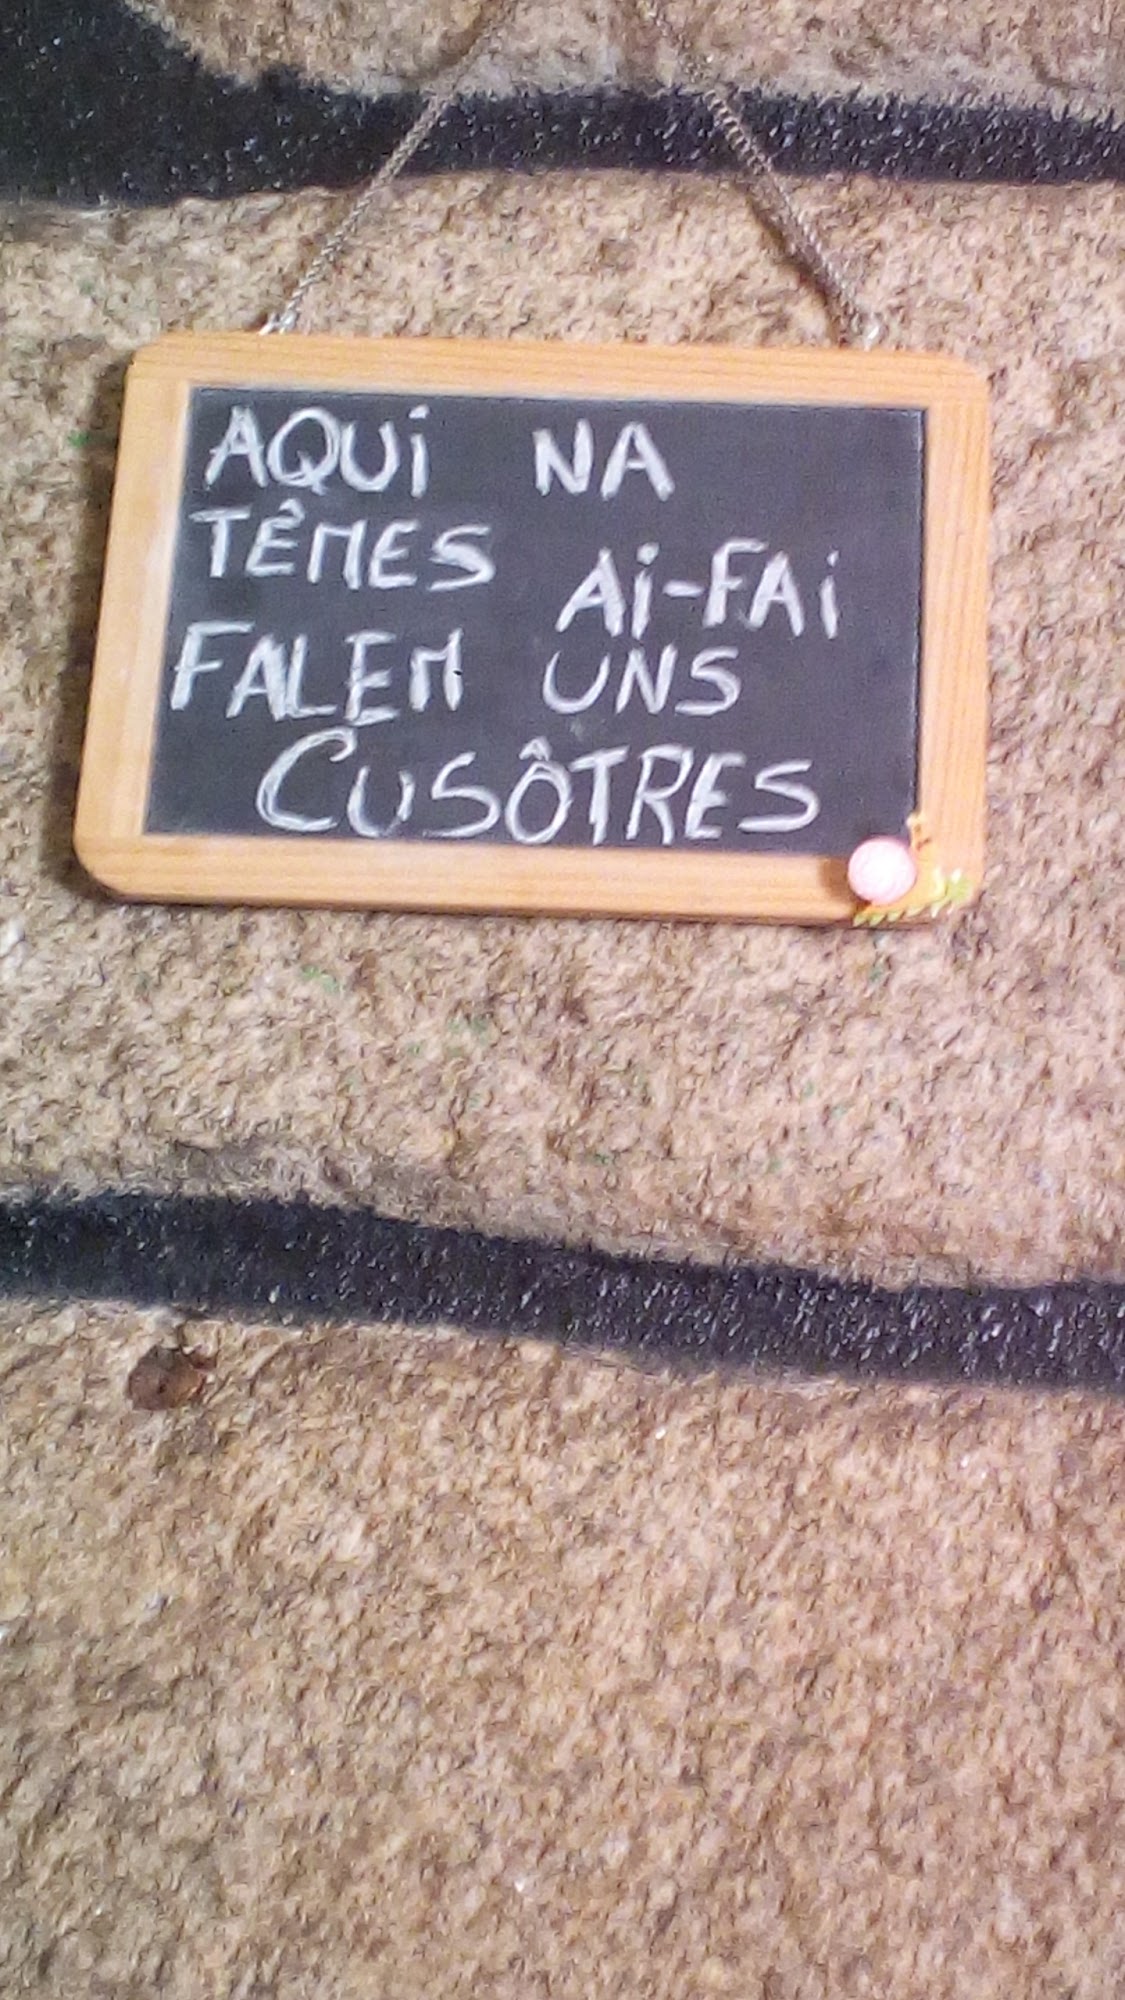 AQUi NA
TÊMES Ai-FAi
FALEM UNS
CUSÔTRES